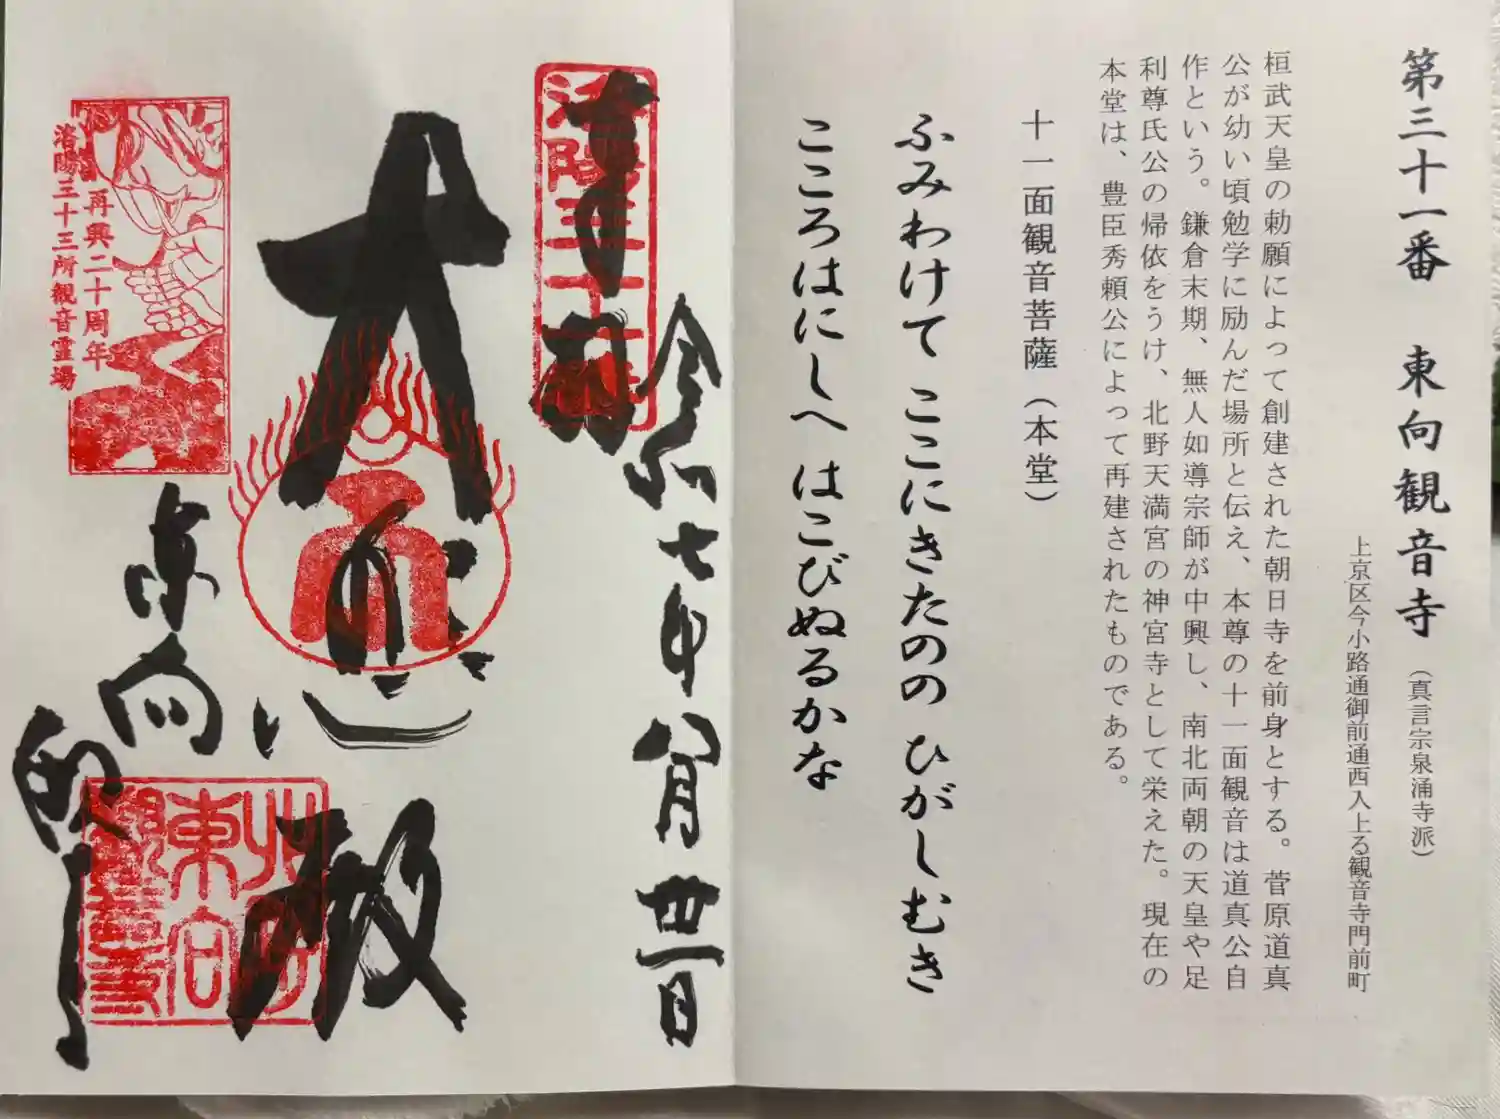 第三十一番 東向観音寺（真言宗泉涌寺派）
上京区今小路通御前通西入上る観音寺門前町
桓武天皇の勅願によって創建された朝日寺を前身とする。菅原道真
公が幼い頃勉学に励んだ場所と伝え、本尊の十一面観音は道真公自
作という。鎌倉末期、無人如導宗師が中興し、南北両朝の天皇や足
利尊氏公の帰依をうけ、北野天満宮の神宮寺として栄えた。現在の
本堂は、豊臣秀頼公によって再建されたものである。
十一面観音菩薩（本堂）
ふみわけて ここにきたのの ひがしむき
こころはにしへ はこびぬるかな
令和七年八月卅一日
奉拝
大悲殿
東向
再興二十周年
洛陽三十三所観音霊場